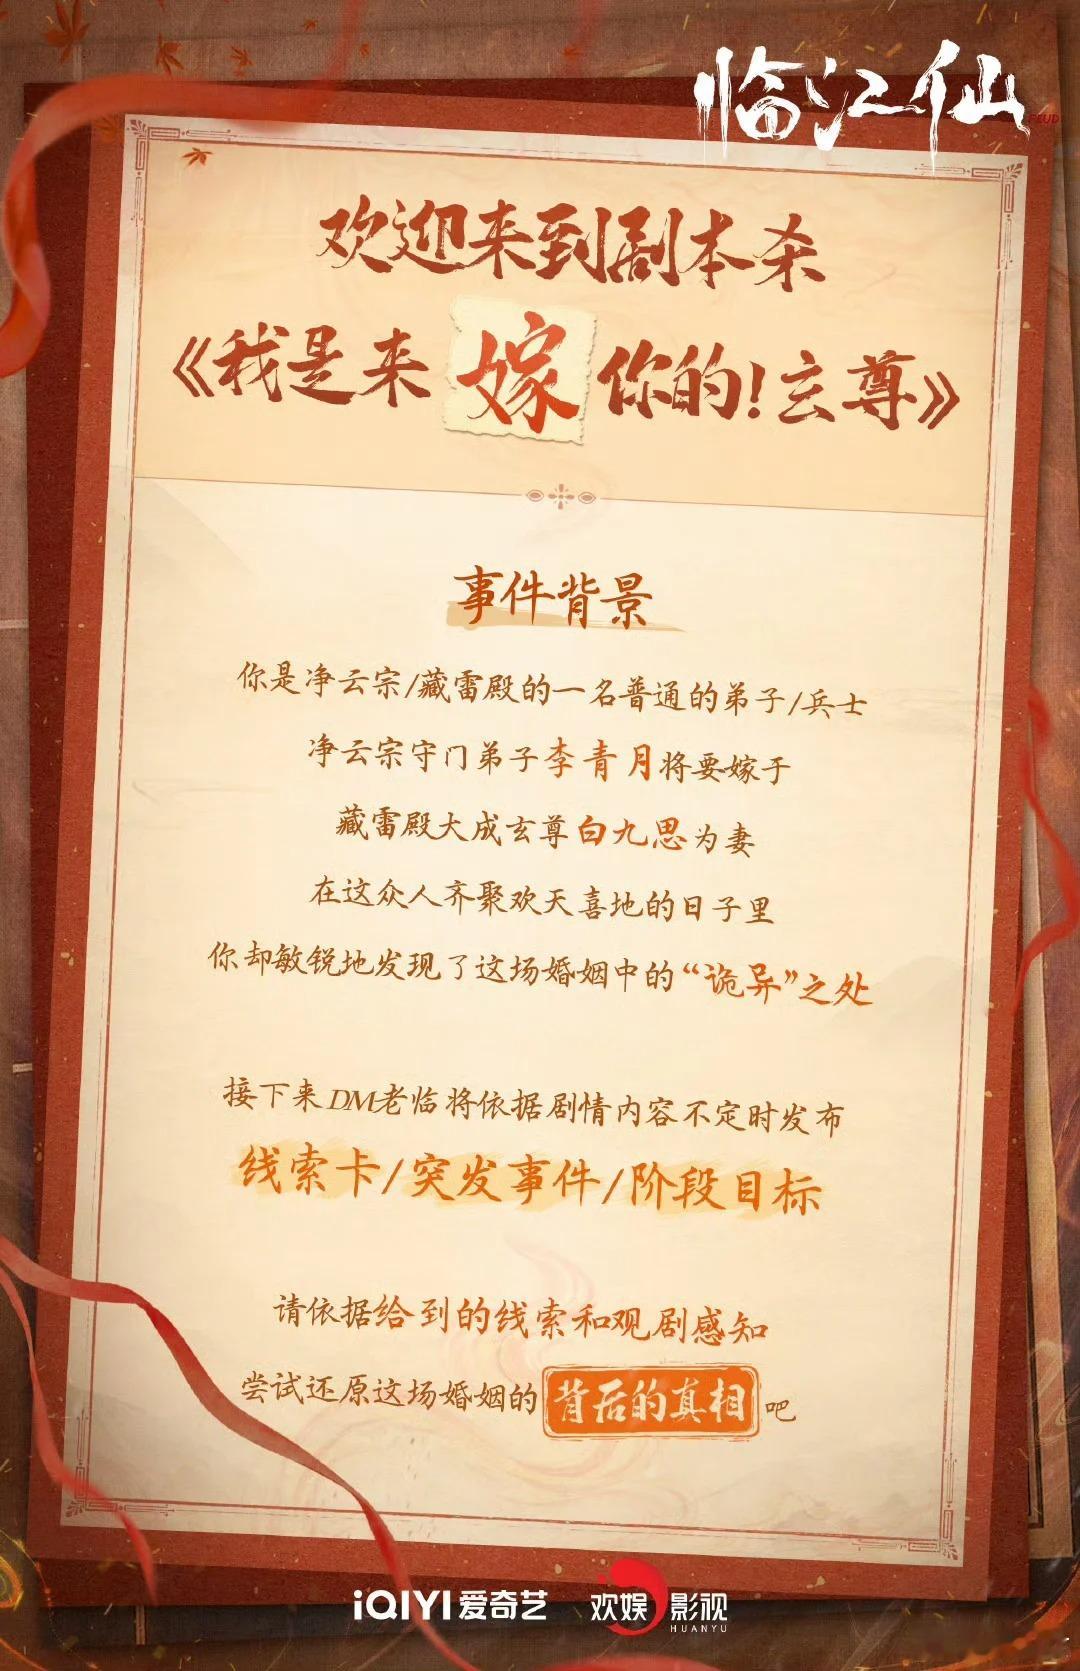 临江仙
FEUD
欢迎来到剧本杀
《我是来嫁你的!玄尊》
事件背景
你是净云宗/藏雷殿的一名普通的弟子/兵士
净云宗守门弟子李青月将要嫁于
藏雷殿大成玄尊白九思为妻
在这众人齐聚欢天喜地的日子里
你却敏锐地发现了这场婚姻中的“诡异”之处
接下来DM老临将依据剧情内容不定时发布
线索卡/突发事件/阶段目标
请依据给到的线索和观剧感知
尝试还原这场婚姻的背后的真相吧
iQIYI 爱奇艺
欢娱影视
HUANYU